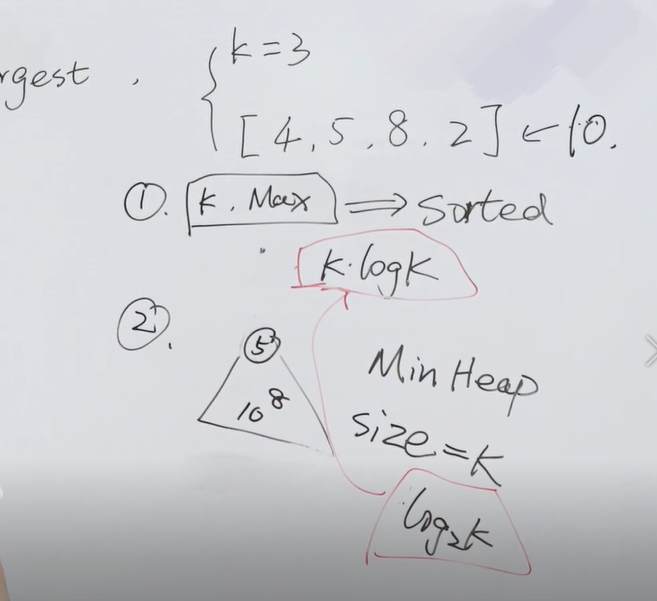 rgest , k=3
[4, 5, 8, 2] ← 10.
①. K. Max ⇒ Sorted
K·logK
②.
5
10 8
Min Heap
size = K
log₂K